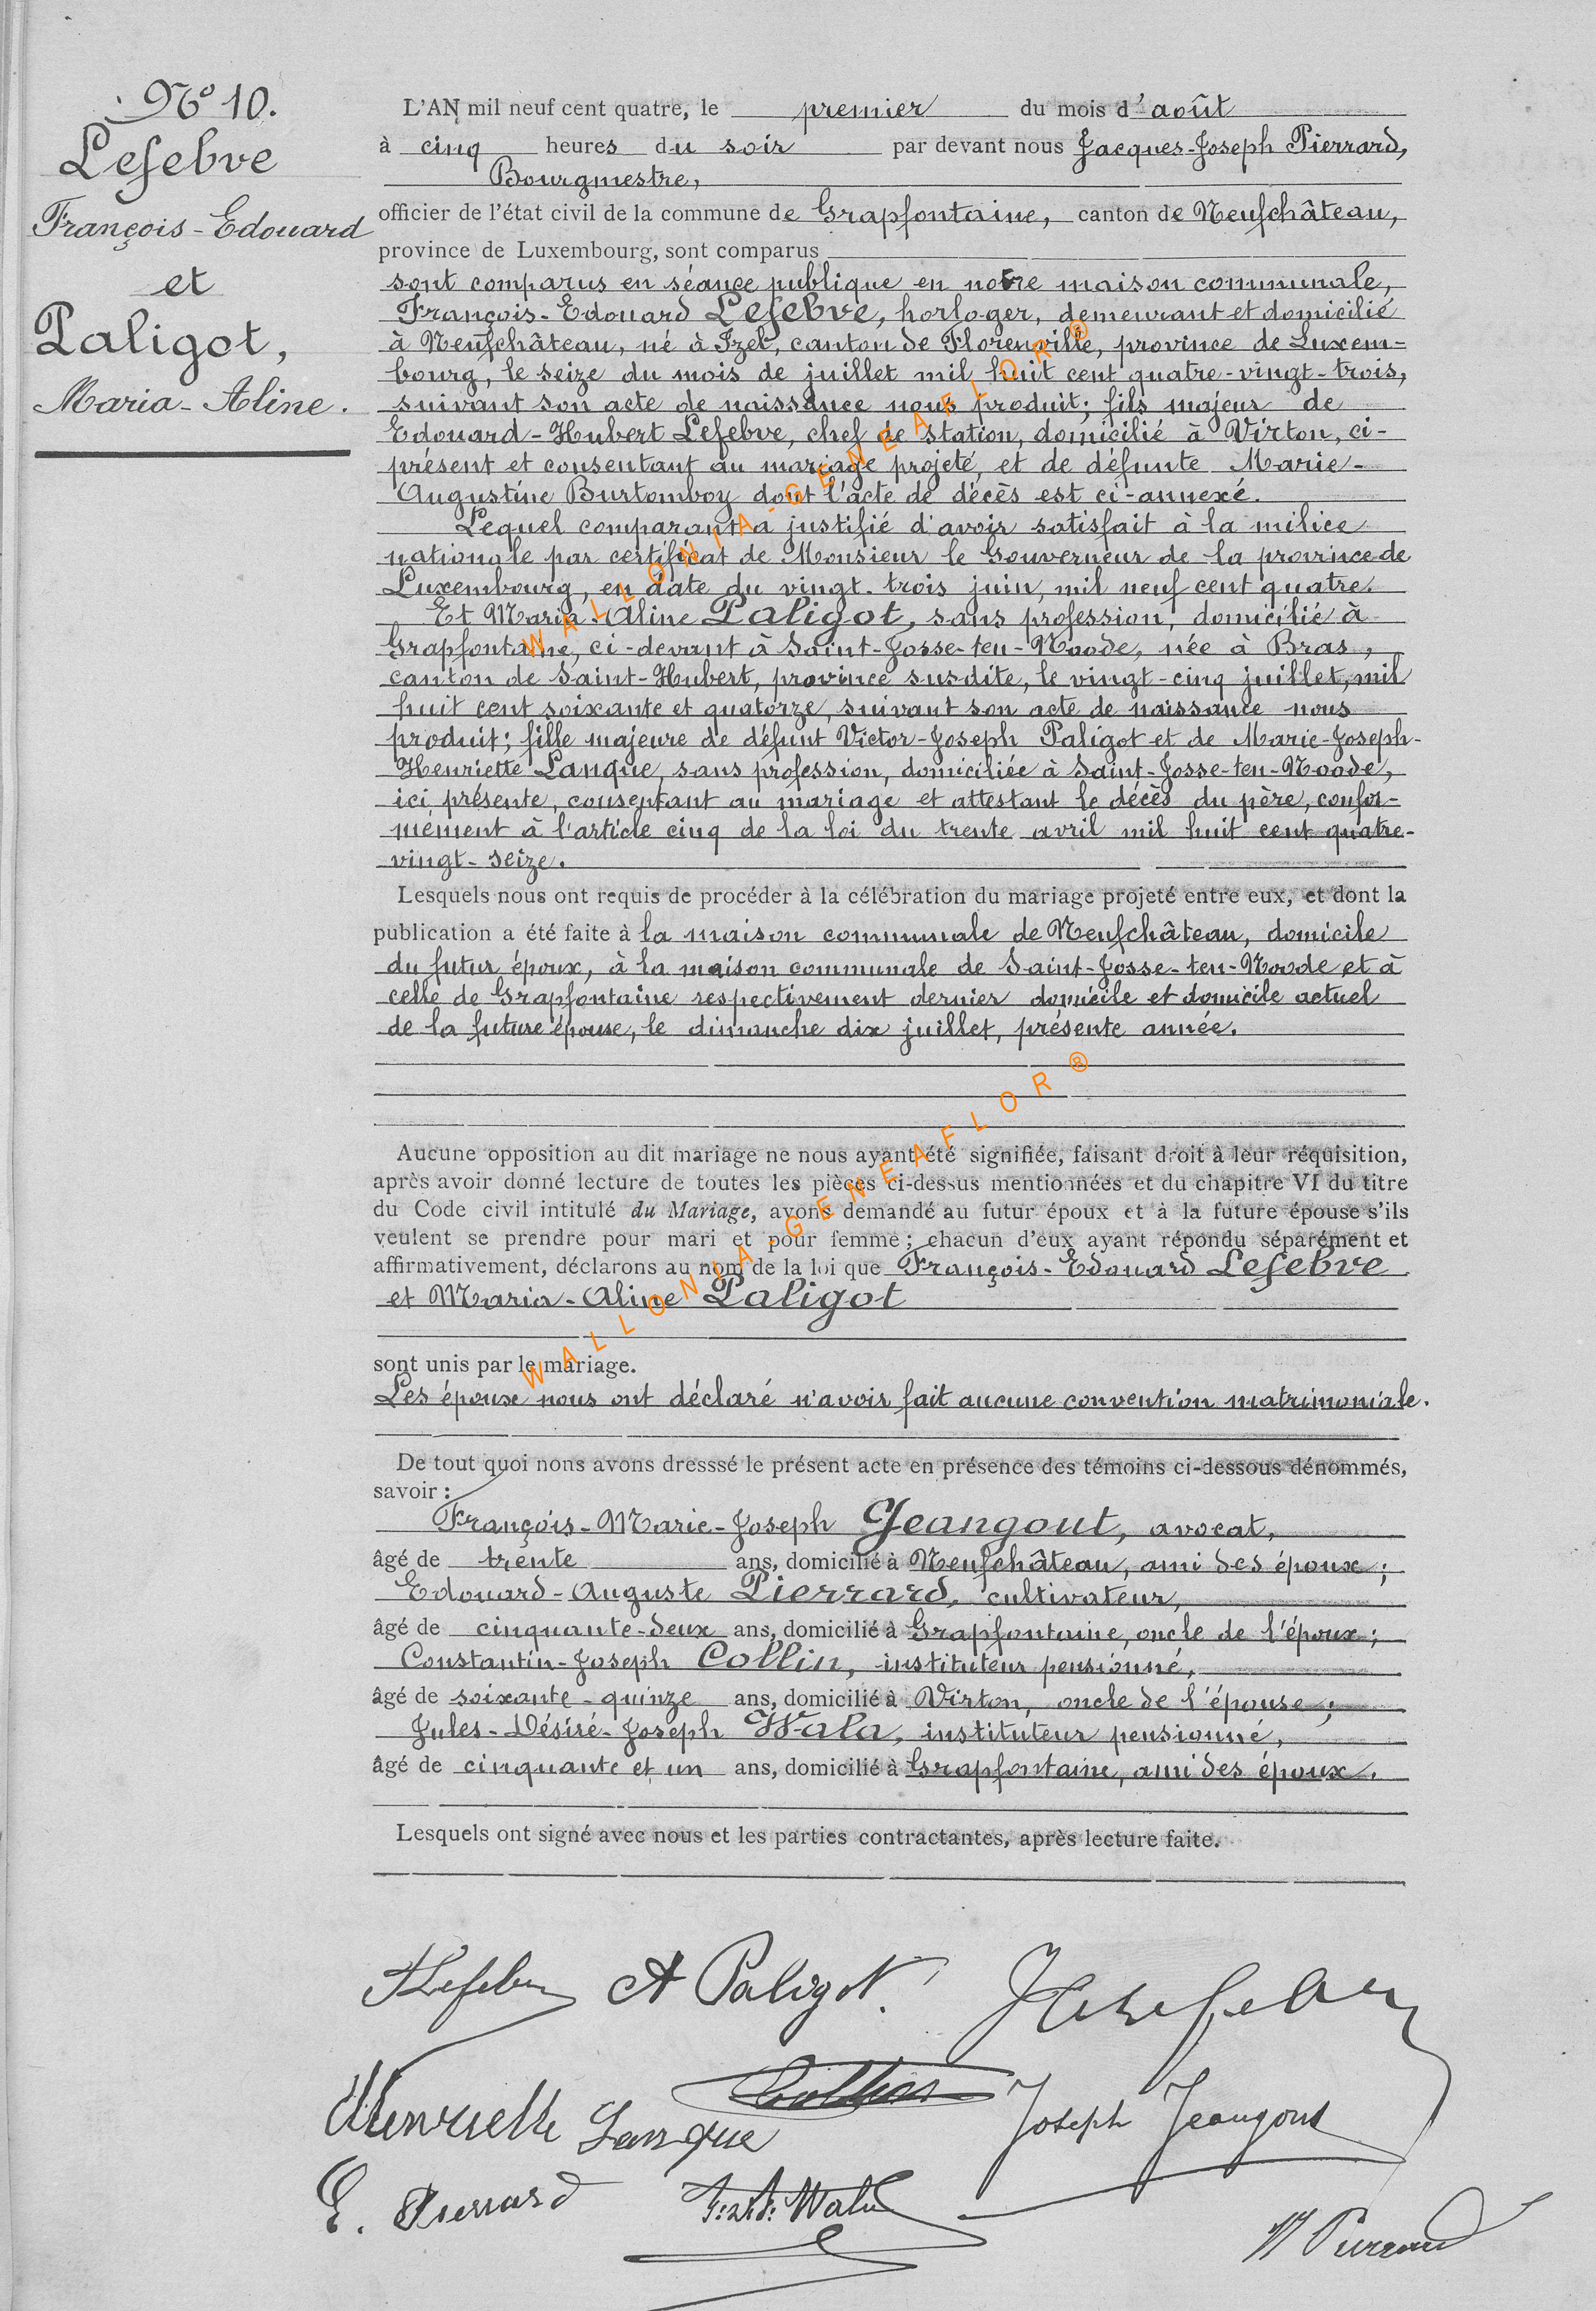 N° 10.
Lefebve
François-Edouard
et
Paligot,
Maria-Aline.
L'AN mil neuf cent quatre, le premier du mois d'août
à cinq heures du soir par devant nous Jacques-Joseph Pierrard,
Bourgmestre,
officier de l'état civil de la commune de Grapfontaine, canton de Neufchâteau,
province de Luxembourg, sont comparus
sont comparus en séance publique en notre maison communale,
François-Edouard Lefebve, horloger, demeurant et domicilié
à Neufchâteau, né à Izel, canton de Florenville, province de Luxem-
bourg, le seize du mois de juillet mil huit cent quatre-vingt-trois,
suivant son acte de naissance nous produit; fils majeur de
Edouard-Hubert Lefebve, chef de station, domicilié à Virton, ci-
présent et consentant au mariage projeté, et de défunte Marie-
Augustine Burtomboy dont l'acte de décès est ci-annexé.
Lequel comparant a justifié d'avoir satisfait à la milice
nationale par certificat de Monsieur le Gouverneur de la province de
Luxembourg, en date du vingt-trois juin, mil neuf cent quatre.
Et Maria-Aline Paligot, sans profession, domicilié à
Grapfontaine, ci-devant à Saint-Josse-ten-Noode, née à Bras,
canton de Saint-Hubert, province susdite, le vingt-cinq juillet, mil
huit cent soixante et quatorze, suivant son acte de naissance nous
produit; fille majeure de défunt Victor-Joseph Paligot et de Marie-Joseph-
Henriette Lanque, sans profession, domiciliée à Saint-Josse-ten-Noode,
ici présente, consentant au mariage et attestant le décès du père, confor-
mément à l'article cinq de la loi du trente avril mil huit cent quatre-
vingt-seize.
Lesquels nous ont requis de procéder à la célébration du mariage projeté entre eux, et dont la
publication a été faite à la maison communale de Neufchâteau, domicile
du futur époux, à la maison communale de Saint-Josse-ten-Noode et à
celle de Grapfontaine respectivement dernier domicile et domicile actuel
de la future épouse, le dimanche dix juillet, présente année.
Aucune opposition au dit mariage ne nous ayant été signifiée, faisant droit à leur réquisition,
après avoir donné lecture de toutes les pièces ci-dessus mentionnées et du chapitre VI du titre
du Code civil intitulé du Mariage, avons demandé au futur époux et à la future épouse s'ils
veulent se prendre pour mari et pour femme; chacun d'eux ayant répondu séparément et
affirmativement, déclarons au nom de la loi que François-Edouard Lefebve
et Maria-Aline Paligot
sont unis par le mariage.
Les époux nous ont déclaré n'avoir fait aucune convention matrimoniale.
De tout quoi nons avons dresssé le présent acte en présence des témoins ci-dessous dénommés,
savoir :
François-Marie-Joseph Jeangout, avocat,
âgé de trente ans, domicilié à Neufchâteau, ami des époux;
Edouard-Auguste Pierrard, cultivateur,
âgé de cinquante-deux ans, domicilié à Grapfontaine, oncle de l'époux;
Constantin-Joseph Collin, instituteur pensionné,
âgé de soixante-quinze ans, domicilié à Virton, oncle de l'épouse;
Jules-Désiré-Joseph Wala, instituteur pensionné,
âgé de cinquante et un ans, domicilié à Grapfontaine, ami des époux.
Lesquels ont signé avec nous et les parties contractantes, après lecture faite.
Lefebve A Paligot. Lefebve
Henriette Lanque Collin Joseph Jeangout
E. Pierrard J:D:J: Wala Pierrard
WALLONIA-GENEAFLOR®
WALLONIA-GENEAFLOR®